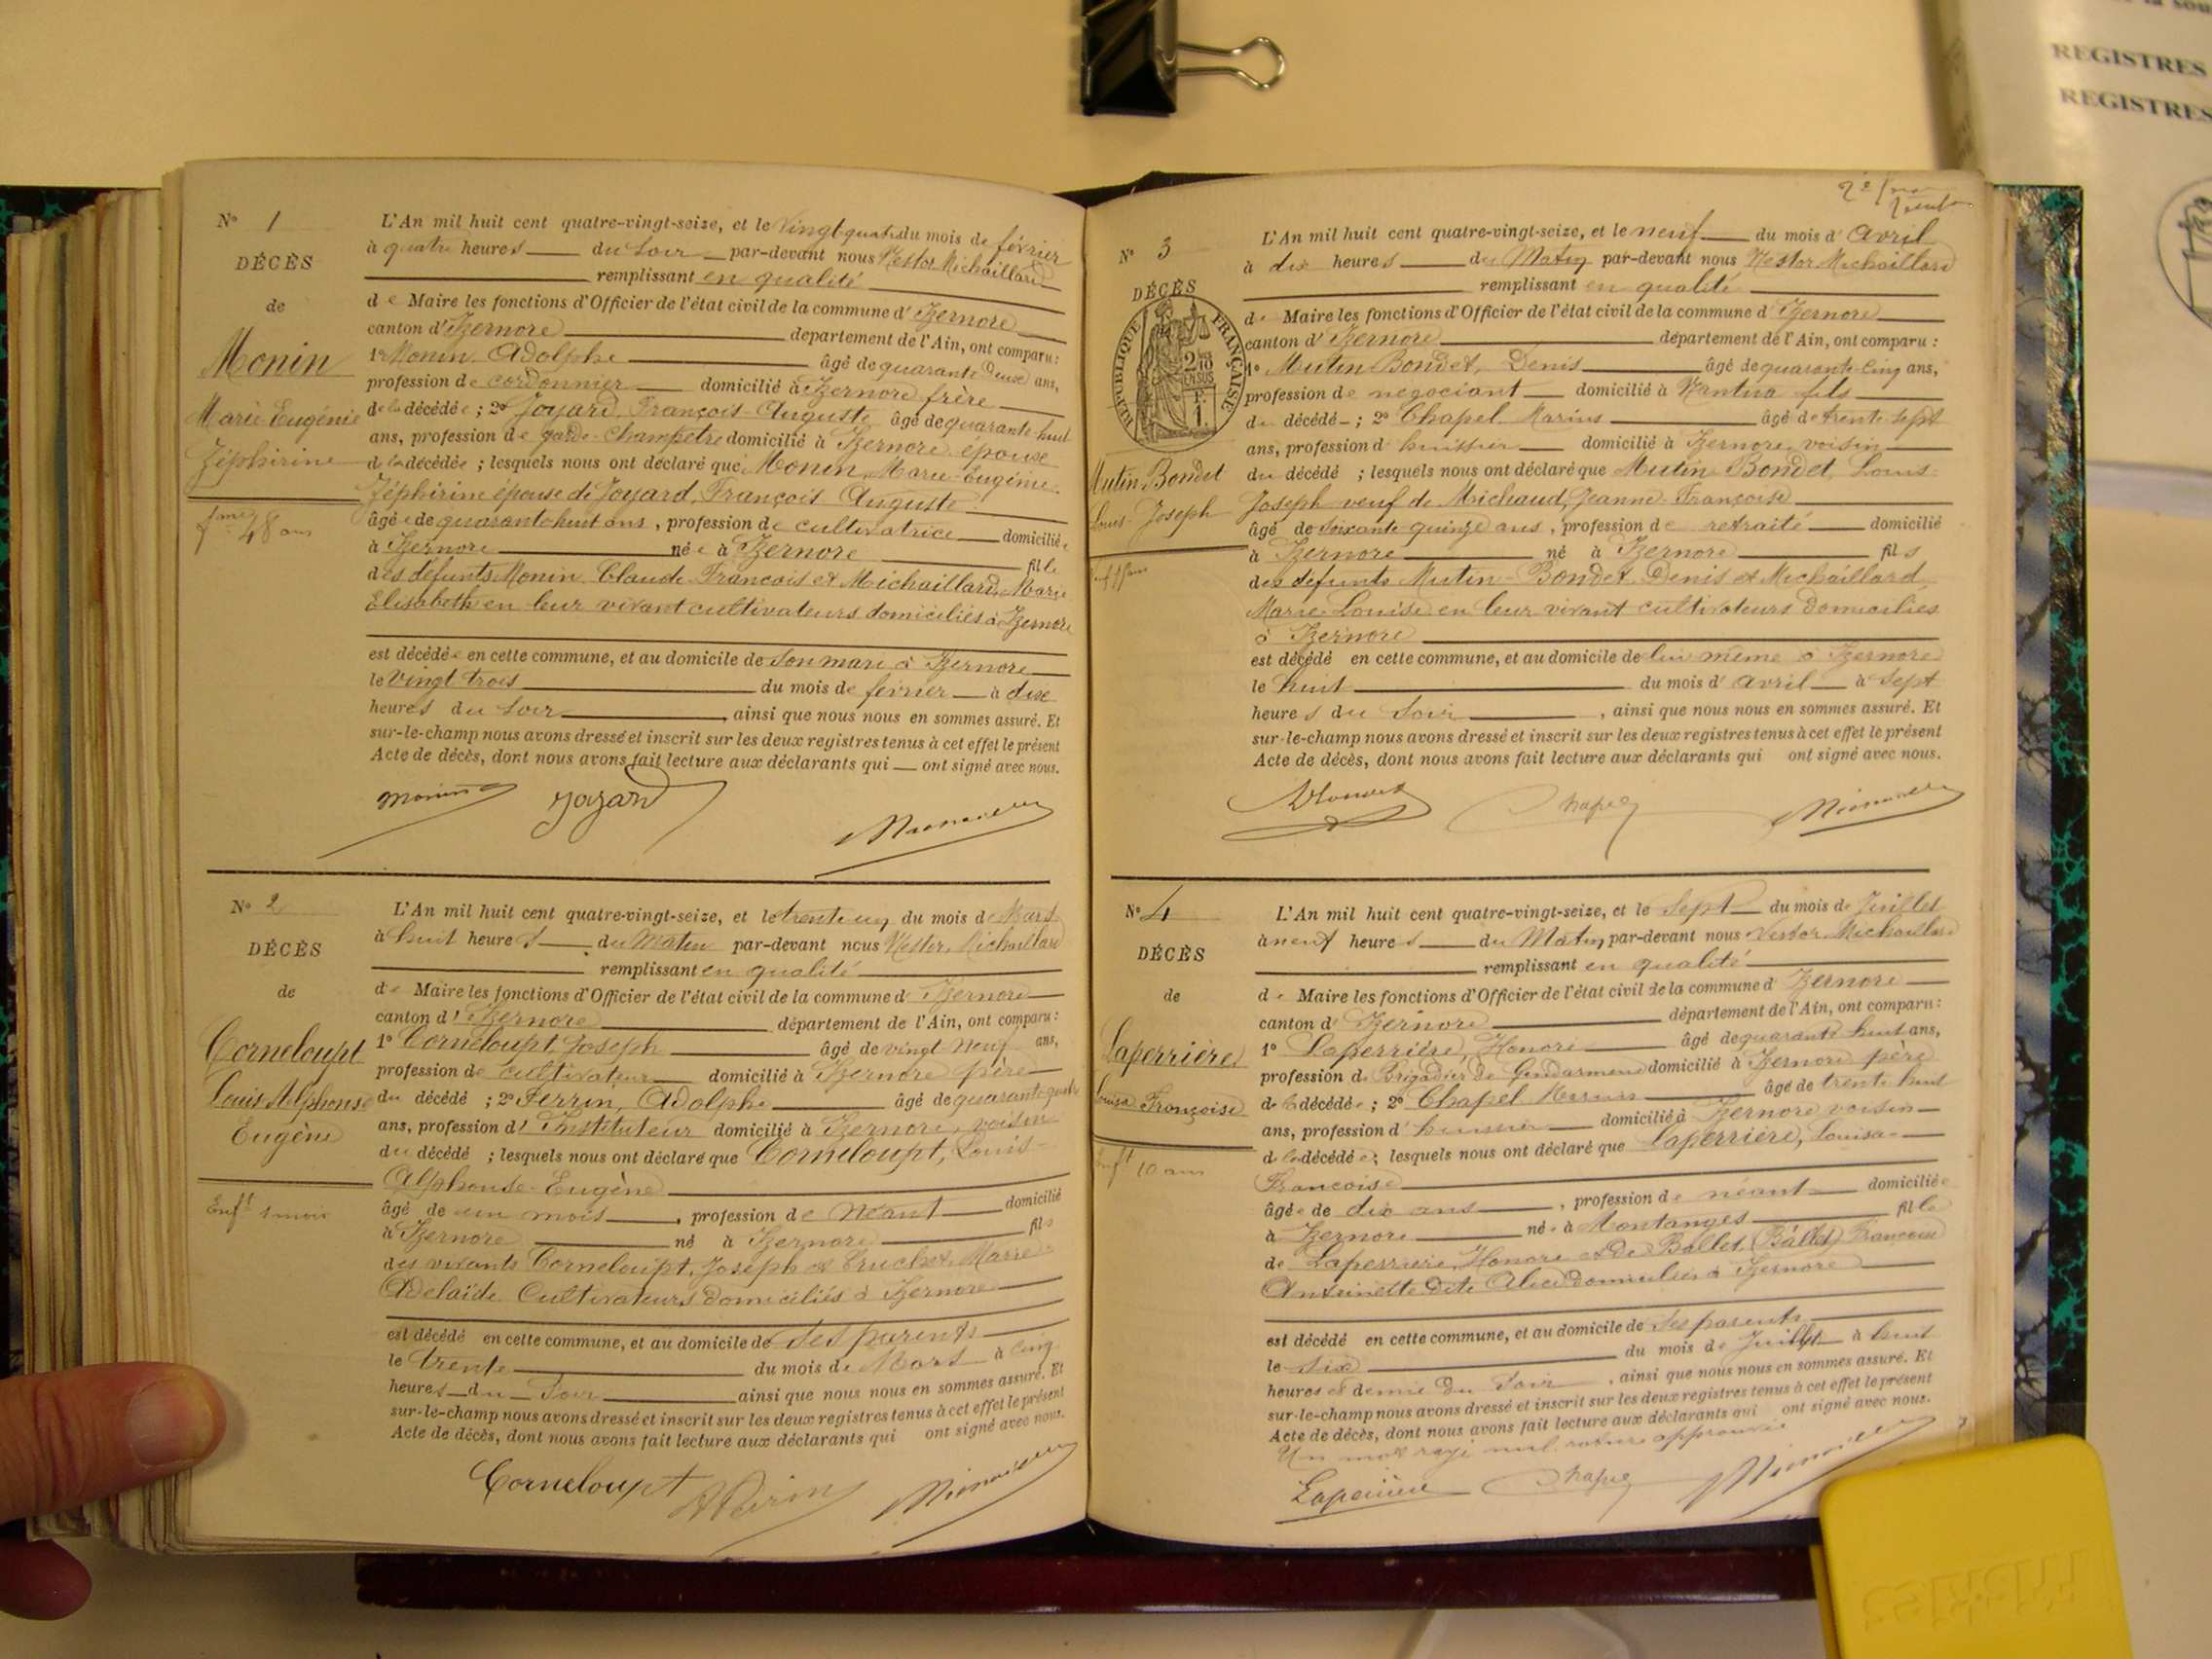 REGISTRES
REGISTRES
N° 1
DÉCÈS
de
Monin
Marie Eugénie
Zéphirine
48 ans
L'An mil huit cent quatre-vingt-seize, et le vingt-quatre du mois de février
à quatre heures du soir par-devant nous Nestor Michaillard
remplissant en qualité
de Maire les fonctions d'Officier de l'état civil de la commune d'Izernore
canton d'Izernore département de l'Ain, ont comparu :
1° Monin Adolphe âgé de quarante deux ans,
profession de cordonnier domicilié à Izernore frère
de la décédée ; 2° Joyard, François-Auguste âgé de quarante-huit
ans, profession de garde-champêtre domicilié à Izernore époux
de la décédée ; lesquels nous ont déclaré que Monin, Marie-Eugénie
Zéphirine épouse de Joyard, François Auguste
âgée de quarante huit ans, profession de cultivatrice domiciliée
à Izernore née à Izernore fille
des défunts Monin Claude François et Michaillard, Marie
Elisabeth en leur vivant cultivateurs domiciliés à Izernore
est décédée en cette commune, et au domicile de son mari à Izernore
le vingt trois du mois de février à dix
heures du soir, ainsi que nous nous en sommes assuré. Et
sur-le-champ nous avons dressé et inscrit sur les deux registres tenus à cet effet le présent
Acte de décès, dont nous avons fait lecture aux déclarants qui ont signé avec nous.
Monin Joyard
N° 2
DÉCÈS
de
Corneloupt
Louis Alphonse
Eugène
Enft 1 mois
L'An mil huit cent quatre-vingt-seize, et le trente un du mois de Mars
à huit heures du Matin par-devant nous Nestor Michaillard
remplissant en qualité
de Maire les fonctions d'Officier de l'état civil de la commune d'Izernore
canton d'Izernore département de l'Ain, ont comparu :
1° Corneloupt, Joseph âgé de vingt neuf ans,
profession de cultivateur domicilié à Izernore père
du décédé ; 2° Perrin, Adolphe âgé de quarante
ans, profession d'Instituteur domicilié à Izernore, voisin
du décédé ; lesquels nous ont déclaré que Corneloupt, Louis-
Alphonse-Eugène
âgé de un mois, profession de Néant domicilié
à Izernore né à Izernore fils
des vivants Corneloupt, Joseph et Cruchet, Marie
Adelaïde Cultivateurs domiciliés à Izernore
est décédé en cette commune, et au domicile de ses parents
le trente du mois de Mars à cinq
heures du Soir ainsi que nous nous en sommes assuré. Et
sur-le-champ nous avons dressé et inscrit sur les deux registres tenus à cet effet le présent
Acte de décès, dont nous avons fait lecture aux déclarants qui ont signé avec nous.
Corneloupt
N° 3
DÉCÈS
RÉPUBLIQUE FRANÇAISE
Mutin-Bondet
Louis-Joseph
L'An mil huit cent quatre-vingt-seize, et le neuf du mois d'Avril
à dix heures du Matin par-devant nous Nestor Michaillard
remplissant en qualité
de Maire les fonctions d'Officier de l'état civil de la commune d'Izernore
canton d'Izernore département de l'Ain, ont comparu :
1° Mutin-Bondet, Denis âgé de quarante-cinq ans,
profession de négociant domicilié à Nantua fils
du décédé ; 2° Chapel Marius âgé de trente-sept
ans, profession d'huissier domicilié à Izernore, voisin
du décédé ; lesquels nous ont déclaré que Mutin-Bondet, Louis-
Joseph veuf de Michaud, Jeanne-Françoise
âgé de soixante-quinze ans, profession de retraité domicilié
à Izernore né à Izernore fils
des défunts Mutin-Bondet, Denis et Michaillard
Marie-Louise en leur vivant cultivateurs domiciliés
à Izernore
est décédé en cette commune, et au domicile de lui même à Izernore
le huit du mois d'avril à sept
heures du Soir, ainsi que nous nous en sommes assuré. Et
sur-le-champ nous avons dressé et inscrit sur les deux registres tenus à cet effet le présent
Acte de décès, dont nous avons fait lecture aux déclarants qui ont signé avec nous.
Chapel
N° 4
DÉCÈS
de
Laperrière
Louisa Françoise
Enft 10 ans
L'An mil huit cent quatre-vingt-seize, et le Sept du mois de Juillet
à neuf heures du Matin par-devant nous Nestor Michaillard
remplissant en qualité
de Maire les fonctions d'Officier de l'état civil de la commune d'Izernore
canton d'Izernore département de l'Ain, ont comparu :
1° Laperrière, Honoré âgé de quarante huit ans,
profession de Brigadier de Gendarmerie domicilié à Izernore père
de la décédée ; 2° Chapel Marius âgé de trente huit
ans, profession d'huissier domicilié à Izernore voisin
de la décédée ; lesquels nous ont déclaré que Laperrière, Louisa-
Françoise
âgée de dix ans, profession de néant domiciliée
à Izernore née à Montanges fille
de Laperrière, Honoré et de Ballet (Ballet) Françoise
Antoinette dite Alice domiciliés à Izernore
est décédé en cette commune, et au domicile de ses parents
le six du mois de Juillet à huit
heures et demie du Soir, ainsi que nous nous en sommes assuré. Et
sur-le-champ nous avons dressé et inscrit sur les deux registres tenus à cet effet le présent
Acte de décès, dont nous avons fait lecture aux déclarants qui ont signé avec nous.
Un mot rayé nul rature approuvée
Laperrière Chapel